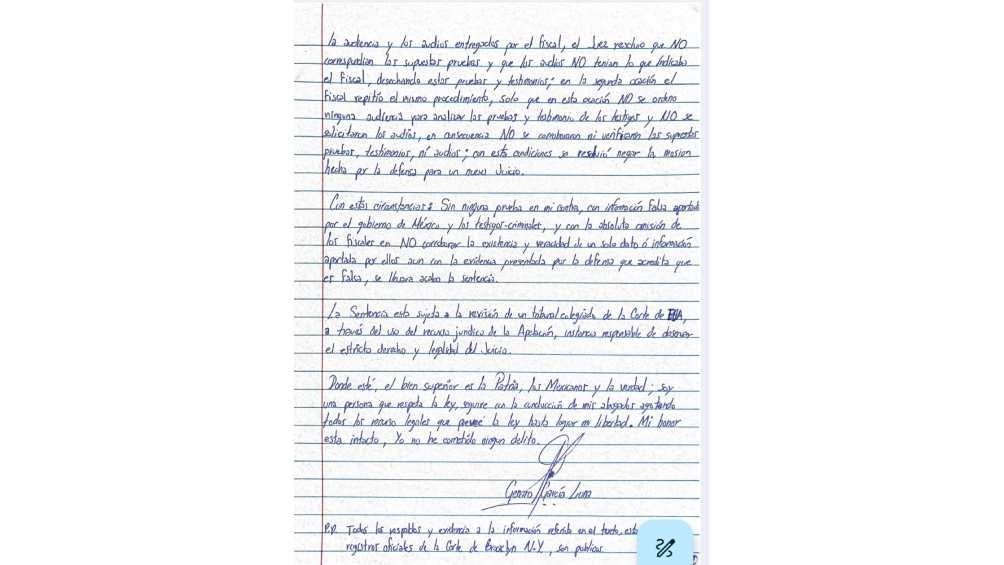 la audiencia y los audios entregados por el fiscal, el Juez resolvio que NO
correspondian las supuestas pruebas y que los audios NO tenian lo que indicaba
el Fiscal, desechando estas pruebas y testimonios; en la segunda ocasión el
Fiscal repitio el mismo procedimiento, solo que en esta ocasión NO se ordeno
ninguna audiencia para analizar las pruebas y testimonio de los testigos y NO se
solicitaron los audios, en consecuencia NO se corroboraron ni verificaron las supuestas
pruebas, testimonios, ni audios; con estas condiciones se resolvió negar la mosion
hecha por la defensa para un nuevo Juicio.
Con estas circunstancias: Sin ninguna prueba en mi contra, con información Falsa aportada
por el gobierno de México y los testigos-criminales, y con la absoluta omisión de
los fiscales en NO corroborar la existencia y veracidad de un solo dato ó información
aportada por ellos aun con la evidencia presentada por la defensa que acredita que
es Falsa, se llevara acabo la sentencia.
La Sentencia esta sujeta a la revisión de un tribunal colegiado de la Corte de EUA,
a través del uso del recurso juridico de la Apelación, instancia responsable de
el estricto derecho y legalidad del Juicio.
Donde esté, el bien superior es la Patria, los Mexicanos y la verdad; soy
una persona que respeta la ley, seguire con la conducción de mis abogados agotando
todos los recurso legales que preveé la ley hasta lograr mi libertad. Mi honor
esta intacto, Yo no he cometido ningun delito.
Genaro García Luna
P.D. Todos los respaldos y evidencia a la información referida en el texto,
registros oficiales de la Corte de Brooklyn N.Y, son publicos.